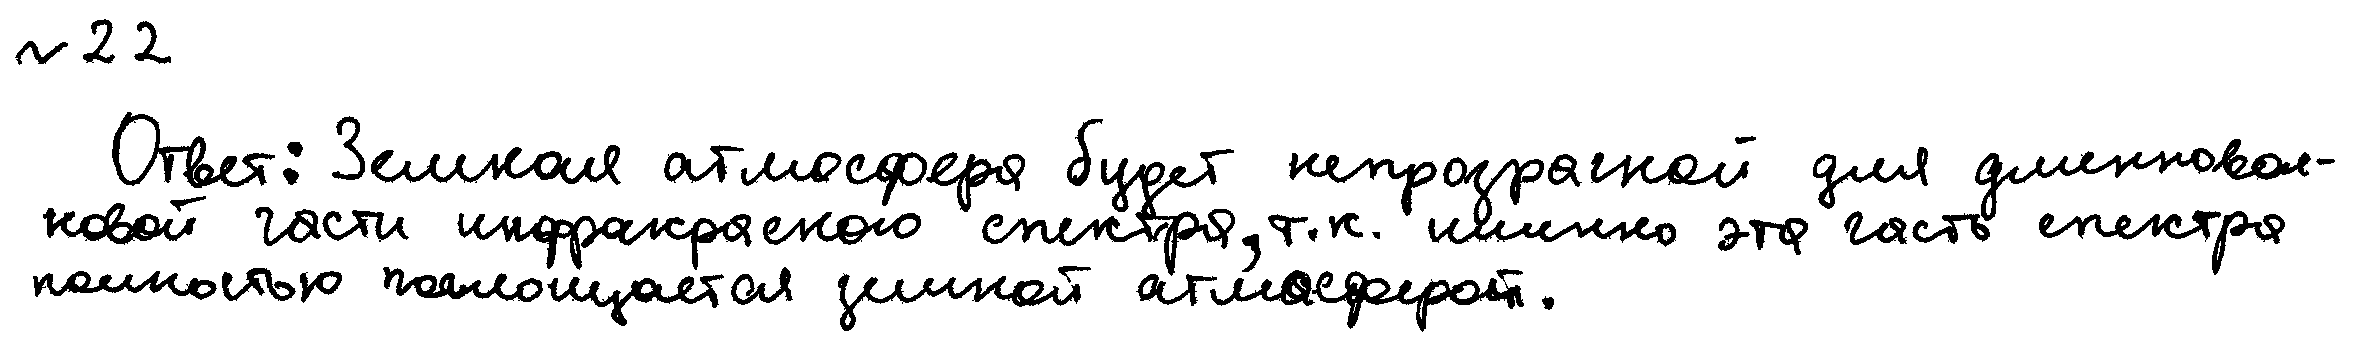 ~ 22
Ответ: Земная атмосфера будет непрозрачной для длинновол-
новой части инфракрасного спектра, т.к. именно эта часть спектра
полностью поглощается земной атмосферой.